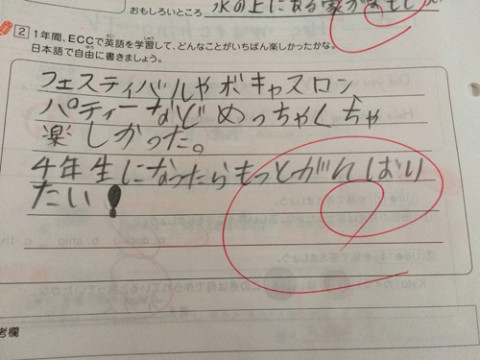 おもしろいところ 水の上にある家がおもし
2 1年間、ECCで英語を学習して、どんなことがいちばん楽しかったかな。
日本語で自由に書きましょう。
フェスティバルやボキャスロン、
パティーなどめっちゃくちゃ
楽しかった。
4年生になったらもっとがんばり
たい!
考欄